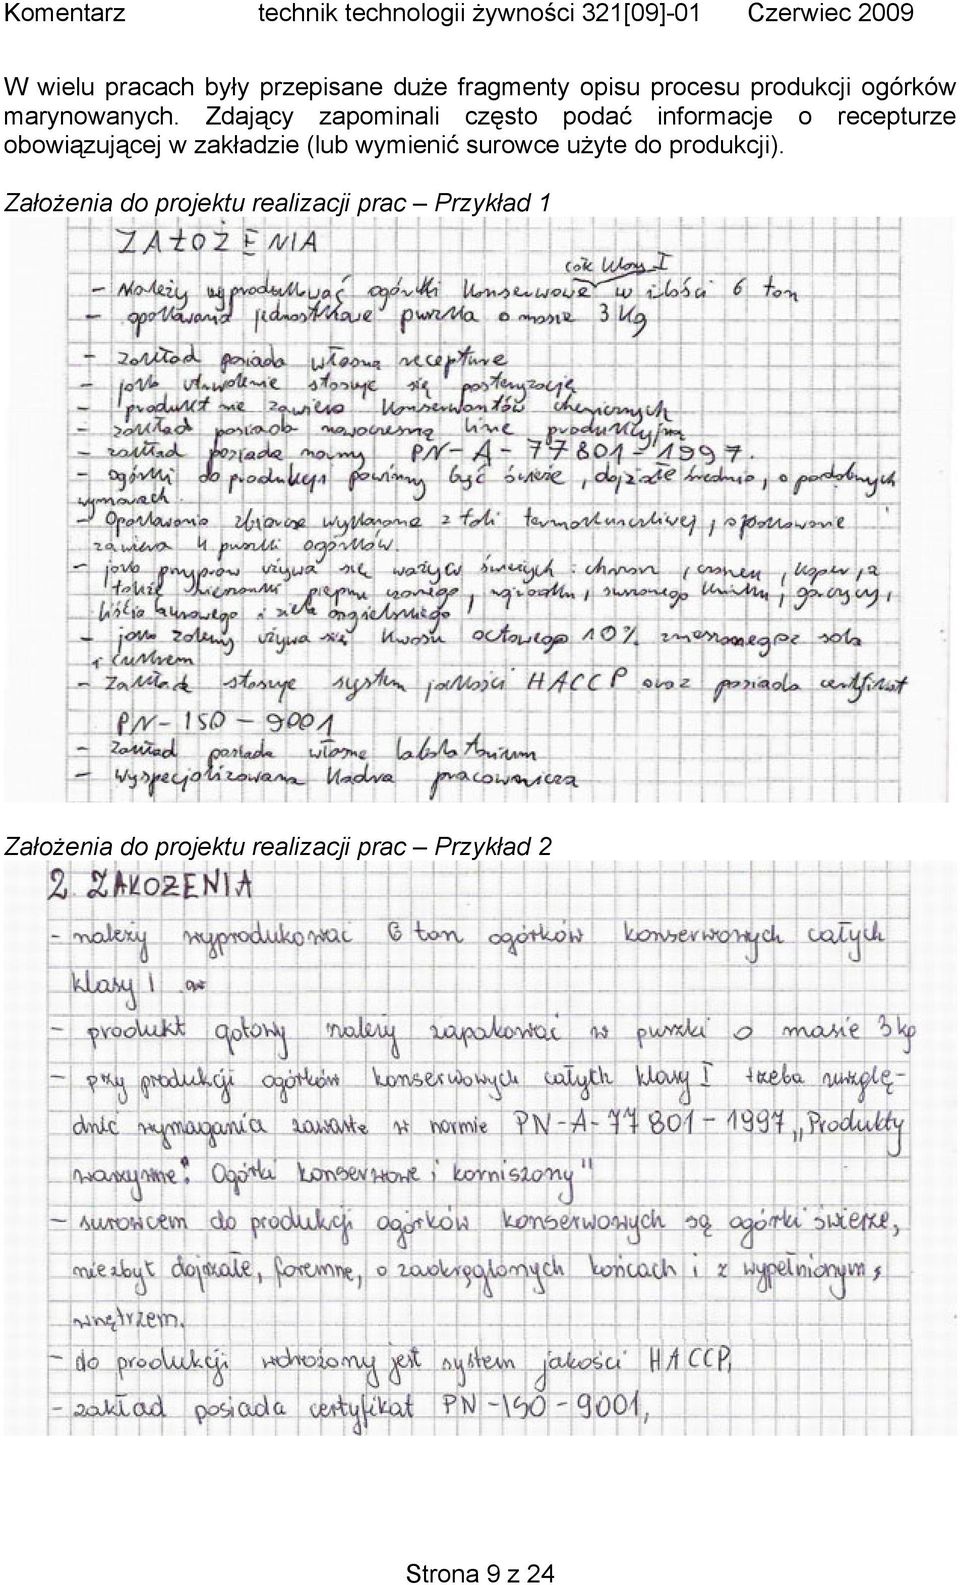 Komentarz technik technologii żywności 321[09]-01 Czerwiec 2009
W wielu pracach były przepisane duże fragmenty opisu procesu produkcji ogórków
marynowanych. Zdający zapominali często podać informacje o recepturze
obowiązującej w zakładzie (lub wymienić surowce użyte do produkcji).
Założenia do projektu realizacji prac – Przykład 1
ZAŁOŻENIA
całe klasy I
- Należy wyprodukować ogórki konserwowe w ilości 6 ton
- opakowania jednostkowe puszka o masie 3 kg
- zakład posiada własną recepture
- jako utrwalenie stosuje się pasteryzację
- produkt nie zawiera konserwantów chemicznych
- zakład posiada nowoczesną linie produkcyjną
- zakład posiada normy PN-A-77801-1997.
- ogórki do produkcji powinny być świeże, dojżałe średnio, o podobnych
wymiarach.
- Opakowania zbiorcze wykonane z foli termokurczliwej, opakowanie
zawiera 4 puszki ogórków.
- jako przypraw używa się warzyw świeżych: chrzan, czosnek, koper, a
także mieszanki pieprzu czarnego, suszonego kminku, gorczycy,
liścia laurowego i ziela angielskiego
- jako zalewy używa się kwasu octowego 10% zmieszanego z sola
i cukrem
- Zakład stosuje system jakości HACCP oraz posiada certyfikat
PN-ISO-9001
- Zakład posiada własne labolatorium
- Wyspecjolizowana kadra pracownicza
Założenia do projektu realizacji prac – Przykład 2
2. ZAŁOŻENIA
- należy wyprodukować 6 ton ogórków konserwowych całych
klasy I
- produkt gotowy należy zapakować w puszki o masie 3 kg
- przy produkcji ogórków konserwowych całych klasy I trzeba uwzglę-
dnić wymagania zawarte w normie PN-A-77801-1997 „Produkty
warzywne: Ogórki konserwowe i korniszony"
- surowcem do produkcji ogórków konserwowych są ogórki świeże,
niezbyt dojrzałe, foremne, o zaokrąglonych końcach i z wypełnionym,
wnętrzem.
- do produkcji wdrożony jest system jakości HACCP,
- zakład posiada certyfikat PN-ISO-9001,
Strona 9 z 24